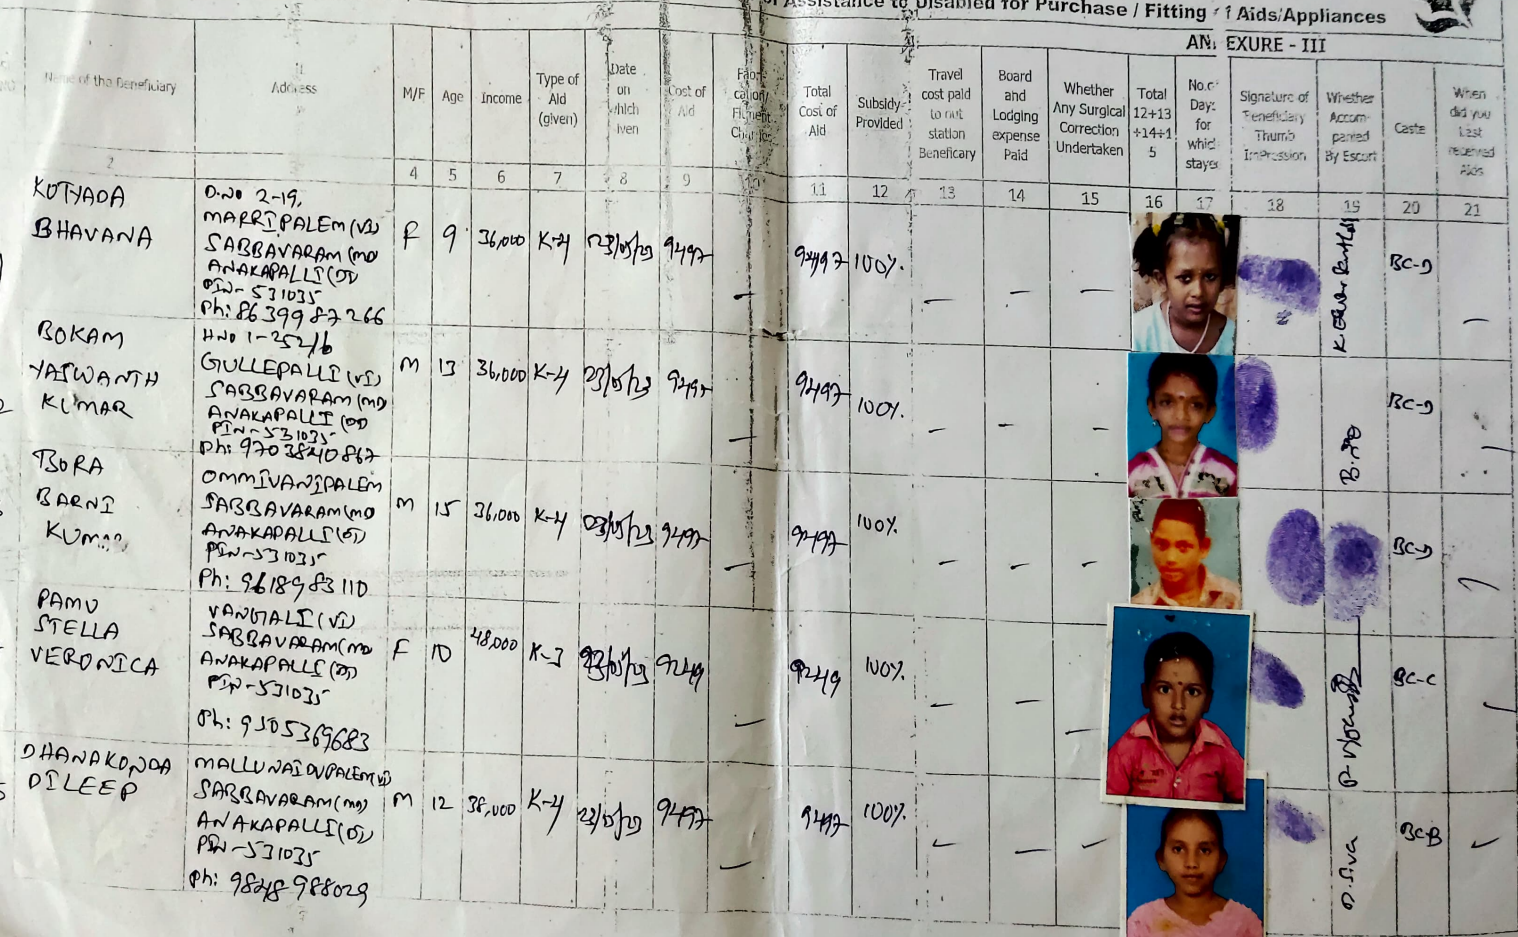 of Assistance to Disabled for Purchase / Fitting of Aids/Appliances
ANNEXURE - III
Name of the Beneficiary
Address
M/F
Age
Income
Type of Aid (given)
Date on which given
Cost of Aid
Total Cost of Aid
Subsidy Provided
Travel cost paid to out station Beneficary
Board and Lodging expense Paid
Whether Any Surgical Correction Undertaken
Total 12+13+14+15
No.of Days for which stayed
Signature of Beneficiary Thumb Impression
Whether Accompanied By Escort
Caste
When did you Last received Aids
2 3 4 5 6 7 8 9 10 11 12 13 14 15 16 17 18 19 20 21
KOTYADA
BHAVANA
D.NO 2-19,
MARRIPALEM (VI)
SABBAVARAM (MD)
ANAKAPALLI (DT)
PIN-531035
Ph: 8639987266
F 9 36,000 K-4 23/05/23 9497 - 9497 100% - - - BC-D -
BOKAM
YASWANTH
KUMAR
H.NO 1-252/6
GULLEPALLI (VI)
SABBAVARAM (MD)
ANAKAPALLI (DT)
PIN-531035
Ph: 9703840867
M 13 36,000 K-4 23/05/23 9497 - 9497 100% - - - BC-D -
BORA
BARNI
KUMAR
OMMIVANIPALEM
SABBAVARAM (MD)
ANAKAPALLI (DT)
PIN-531035
Ph: 9618983110
M 15 36,000 K-4 23/05/23 9497 - 9497 100% - - - BC-D
PAMU
STELLA
VERONICA
VANGALI (VI)
SABBAVARAM (MD)
ANAKAPALLI (DT)
PIN-531035
Ph: 9505369683
F 10 48,000 K-3 23/05/23 9249 - 9249 100% - - - BC-C
DHANAKONDA
DILEEP
MALLUNAIDUPALEM (VI)
SABBAVARAM (MD)
ANAKAPALLI (DT)
PIN-531035
Ph: 9848988029
M 12 38,000 K-4 23/05/23 9497 - 9497 100% - - - D.Siva BC-B